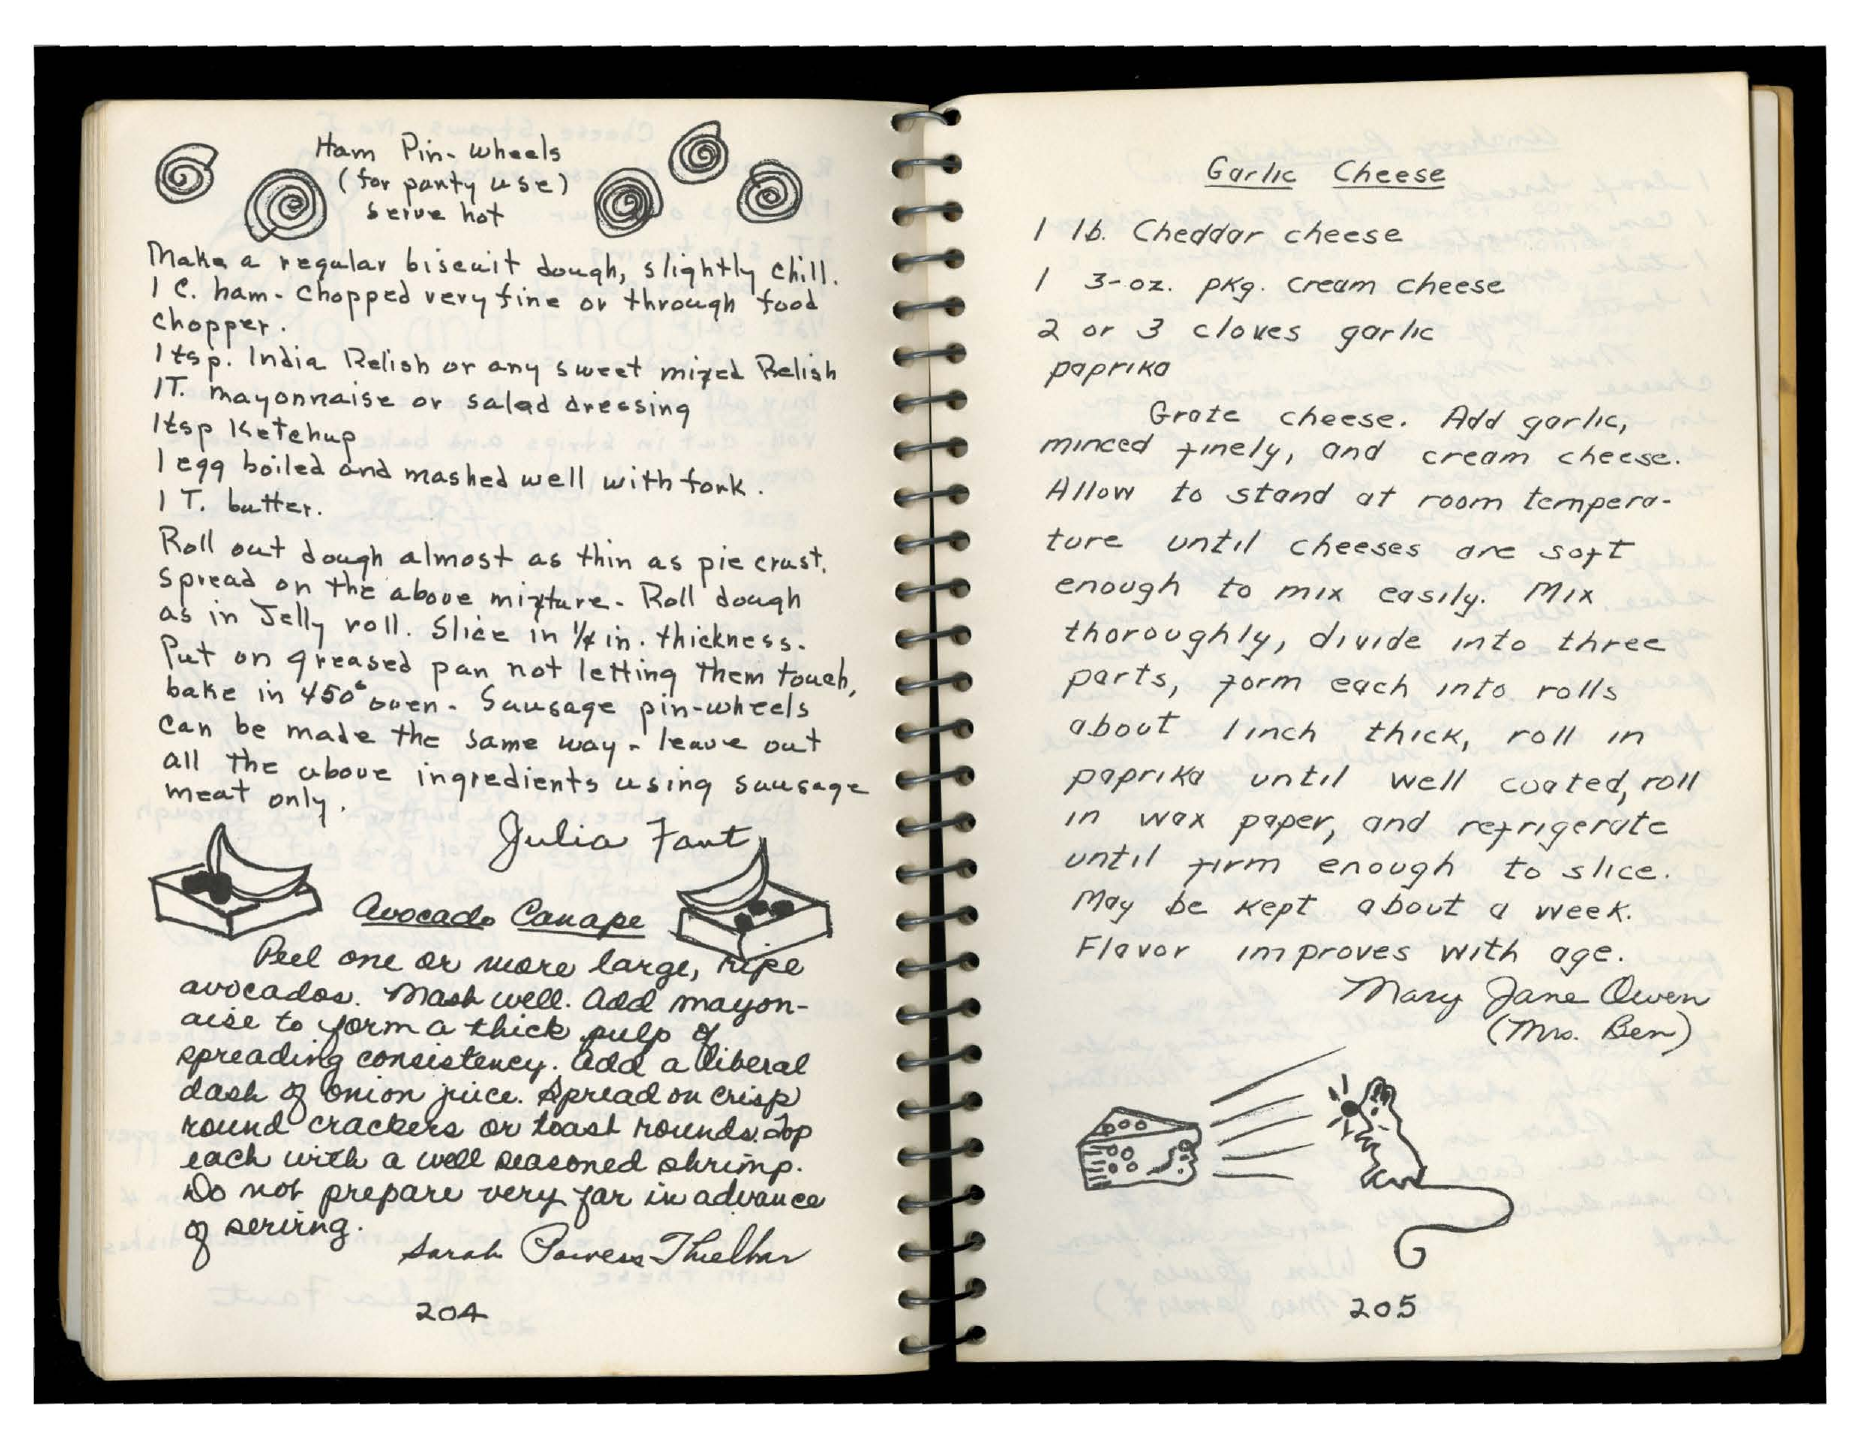 Ham Pin-wheels
(for party use)
serve hot
Make a regular biscuit dough, slightly chill.
1 C. ham - chopped very fine or through food
chopper.
1 tsp. India Relish or any sweet mixed Relish
1T. mayonnaise or salad dressing
1tsp Ketchup
1 egg boiled and mashed well with fork.
1 T. butter.
Roll out dough almost as thin as pie crust.
Spread on the above mixture - Roll dough
as in Jelly roll. Slice in 1/4 in. thickness.
Put on greased pan not letting them touch,
bake in 450° oven - Sausage pin-wheels
can be made the same way - leave out
all the above ingredients using sausage
meat only.
Julia Fant
Avocado Canape
Peel one or more large, ripe
avocados. Mash well. Add mayon-
aise to form a thick pulp of
spreading consistency. Add a liberal
dash of onion juice. Spread on crisp
round crackers or toast rounds. Top
each with a well seasoned shrimp.
Do not prepare very far in advance
of serving.
Sarah Powers Thielbar
204
Garlic Cheese
1 lb. Cheddar cheese
1 3-oz. pkg. cream cheese
2 or 3 cloves garlic
paprika
Grate cheese. Add garlic,
minced finely, and cream cheese.
Allow to stand at room tempera-
ture until cheeses are soft
enough to mix easily. Mix
thoroughly, divide into three
parts, form each into rolls
about 1 inch thick, roll in
paprika until well coated, roll
in wax paper, and refrigerate
until firm enough to slice.
May be kept about a week.
Flavor improves with age.
Mary Jane Owen
(Mrs. Ben)
205